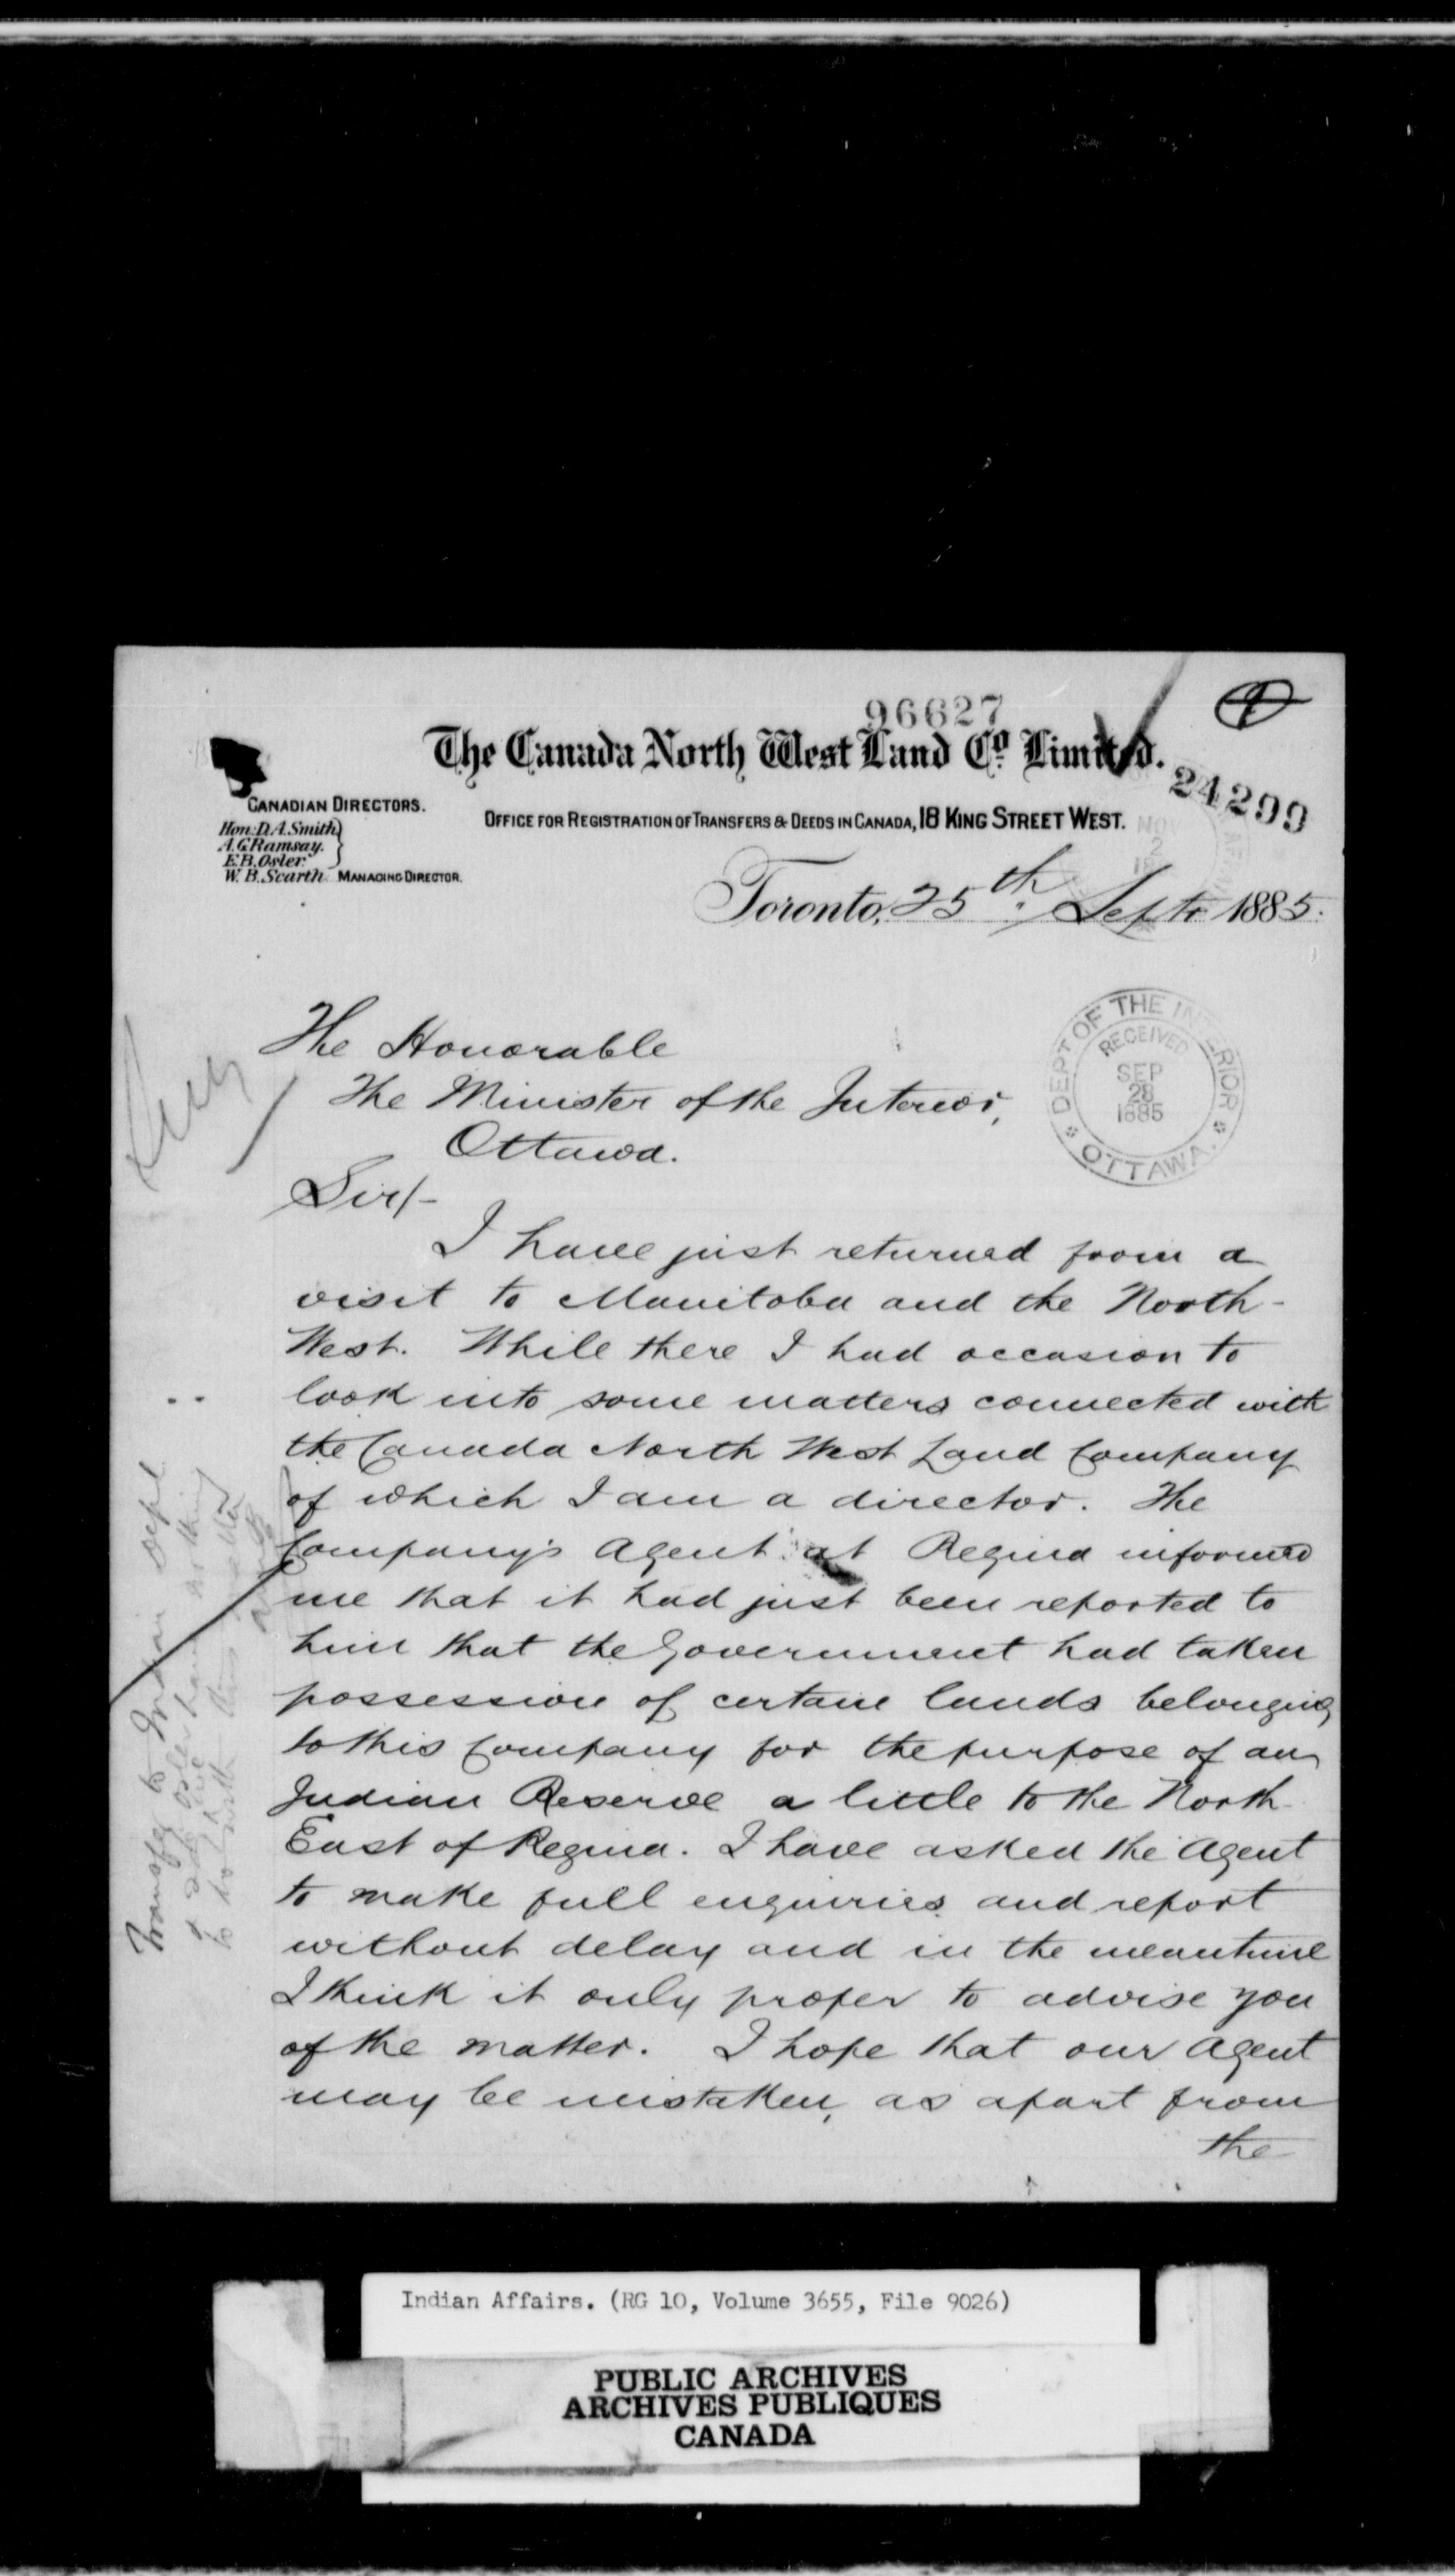 96627
The Canada North West Land Co. Limited.
24299
CANADIAN DIRECTORS.
Hon. D. A. Smith
A. G. Ramsay.
E. B. Osler.
W. B. Scarth. MANAGING DIRECTOR.
OFFICE FOR REGISTRATION OF TRANSFERS & DEEDS IN CANADA, 18 KING STREET WEST.
NOV
2
Toronto, 25th. Septr 1885.
DEPT OF THE INTERIOR
RECEIVED
SEP
28
1885
OTTAWA.
The Honorable
The Minister of the Interior,
Ottawa.
Sir/-
I have just returned from a
visit to Manitoba and the North-
West. While there I had occasion to
look into some matters connected with
the Canada North West Land Company
of which I am a director. The
Company's Agent at Regina informed
me that it had just been reported to
him that the Government had taken
possession of certain lands belonging
to this Company for the purpose of an
Indian Reserve a little to the North
East of Regina. I have asked the Agent
to make full enquiries and report
without delay and in the meantime
I think it only proper to advise you
of the matter. I hope that our Agent
may be mistaken, as apart from
the
Transfer to Indian Dept
Indian Affairs. (RG 10, Volume 3655, File 9026)
PUBLIC ARCHIVES
ARCHIVES PUBLIQUES
CANADA